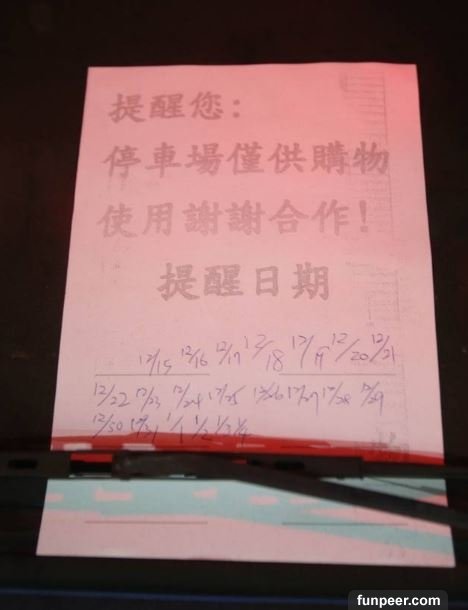 提醒您：
停車場僅供購物
使用謝謝合作！
提醒日期
12/15 12/16 12/17 12/18 12/19 12/20 12/21
12/22 12/23 12/24 12/25 12/26 12/27 12/28 12/29
12/30 12/31 1/1 1/2 1/3 1/4
funpeer.com